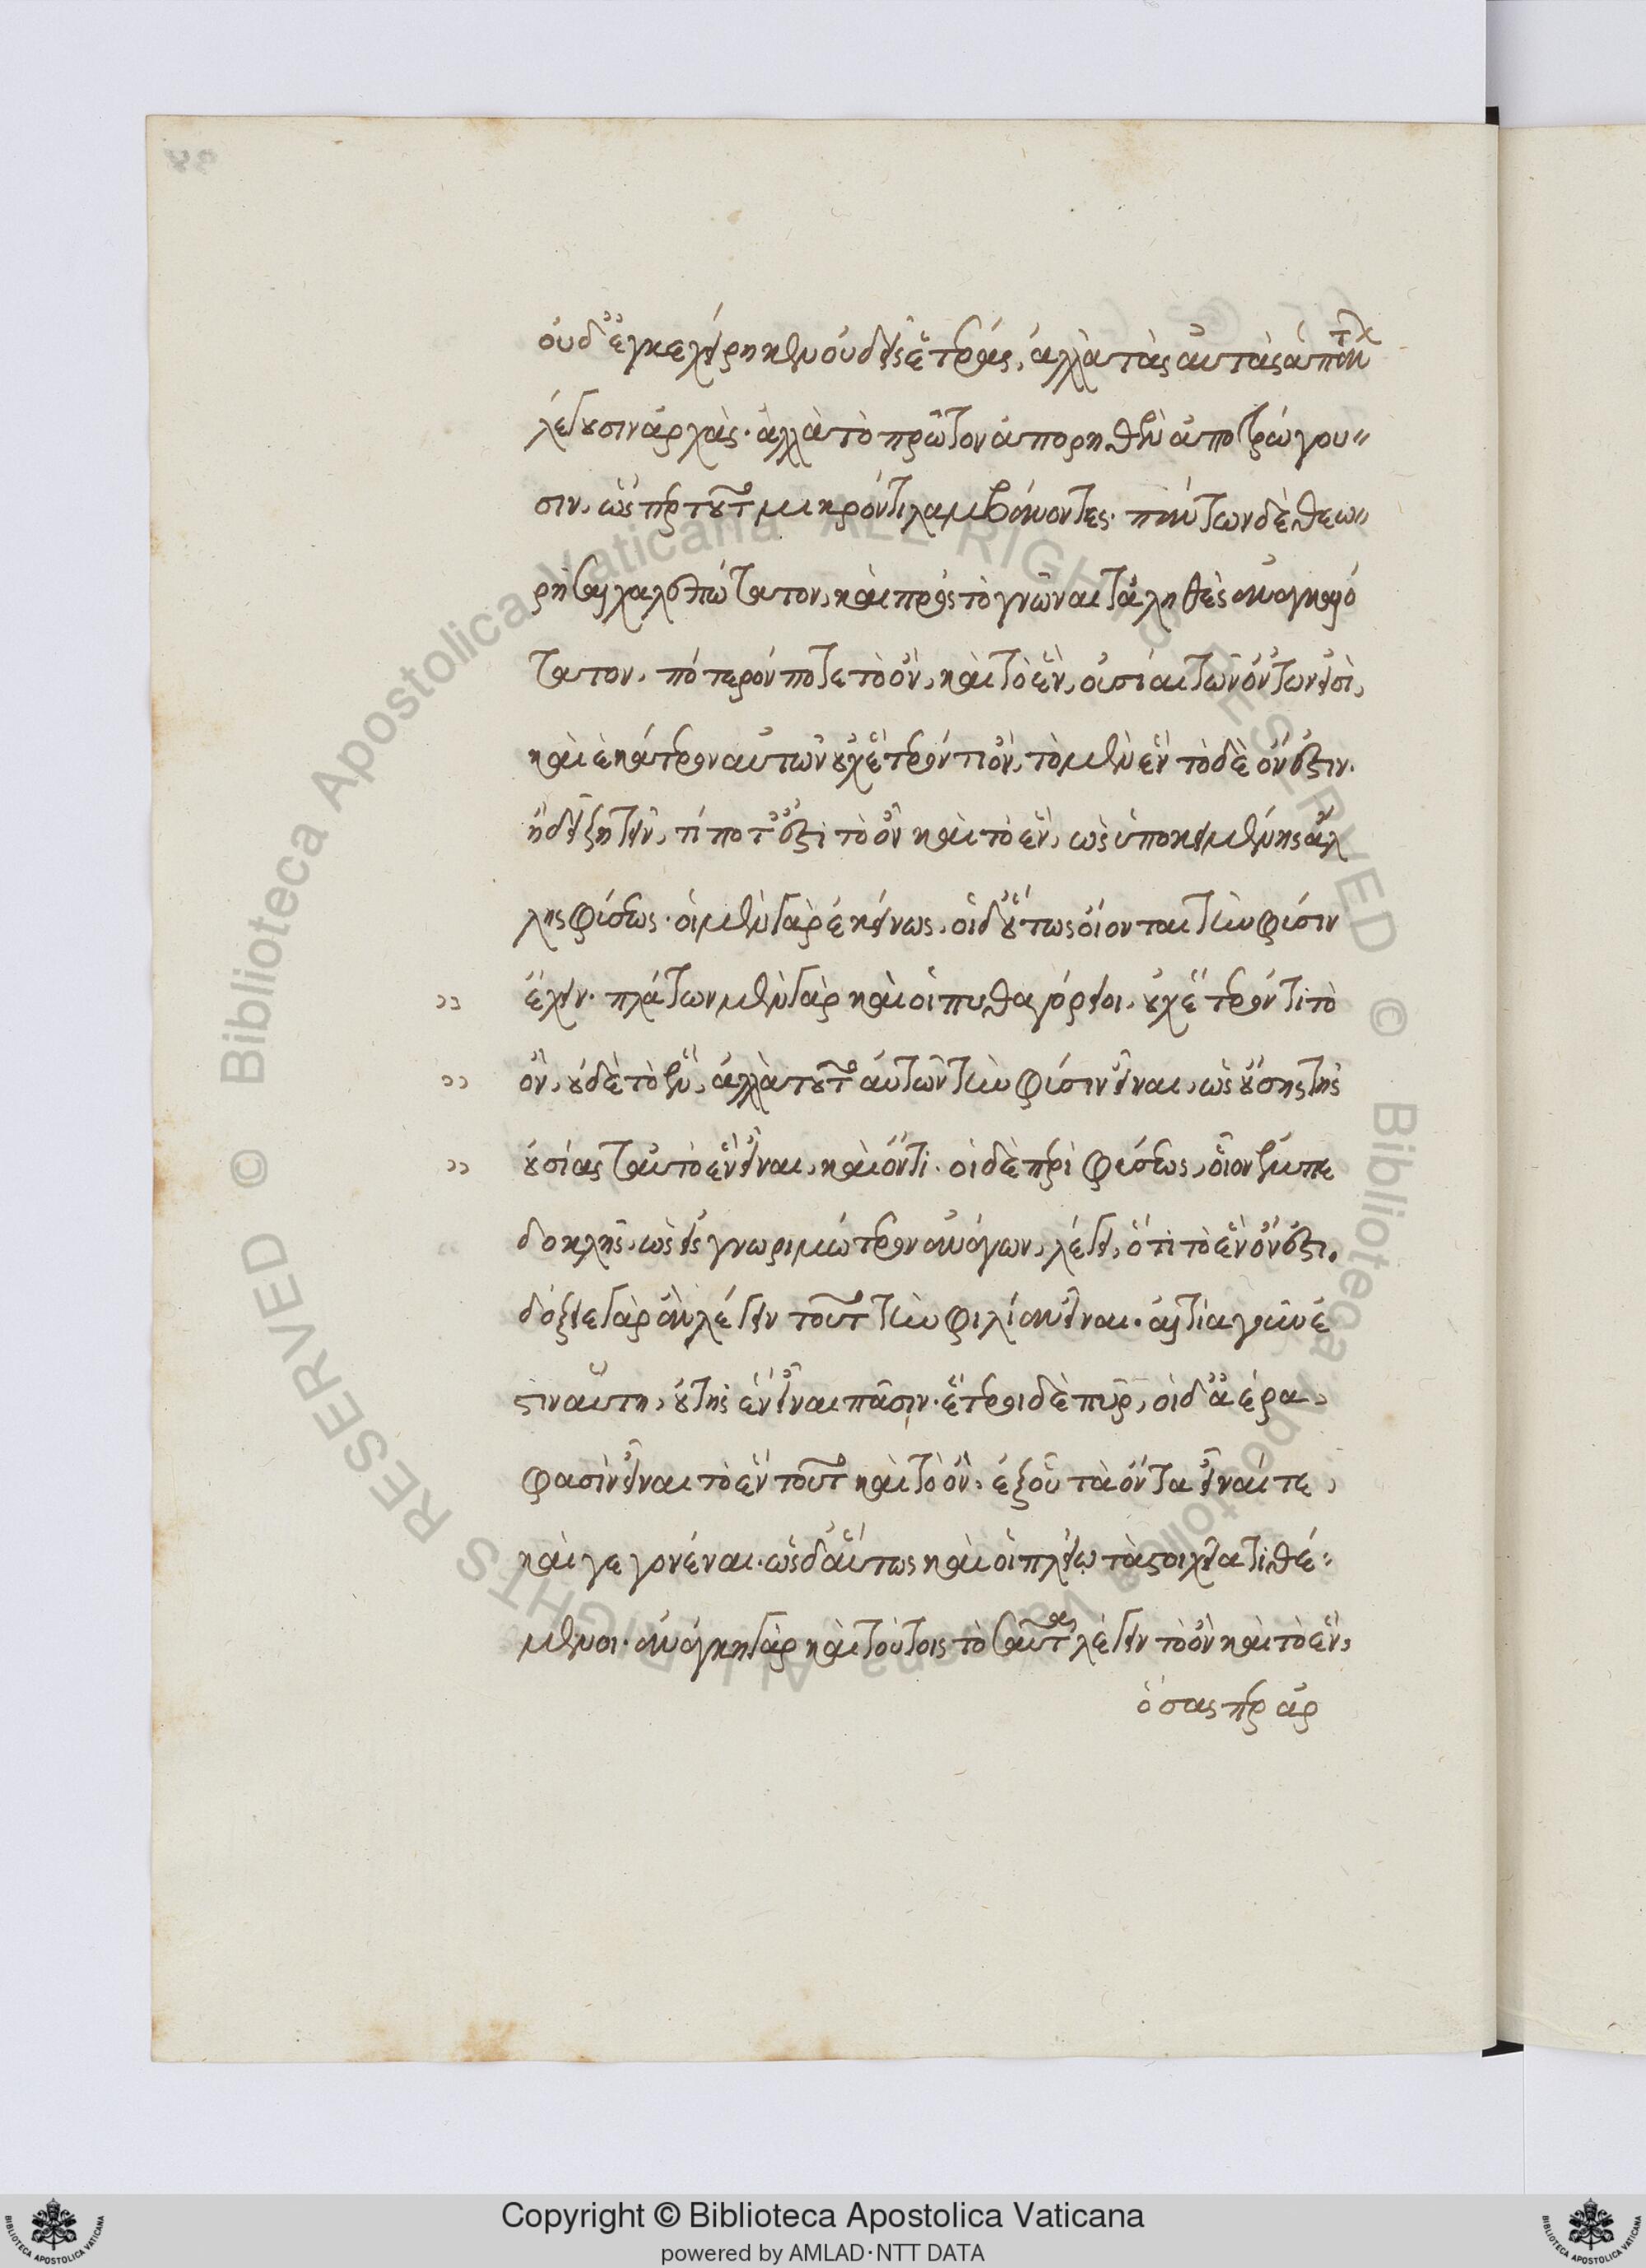 οὐδ' ἐγκεχείρηκεν οὐδεὶς ἑτέρας, ἀλλὰ τὰς αὐτὰς ἁπάντων
λέγουσιν ἀρχὰς. ἀλλὰ τὸ πρῶτον ἀπορηθὲν ἀποτρώγου-
σιν, ὥσπερ τοῦτο μικρόν τι λαμβάνοντες. πάντων δὲ θεω-
ρῆσαι χαλεπώτατον, καὶ πρὸς τὸ γνῶναι τἀληθὲς ἀναγκαιό
τατον, πότερόν ποτε τὸ ὄν, καὶ τὸ ἕν, οὐσίαι τῶν ὄντων εἰσὶ,
καὶ ἑκάτερον αὐτῶν οὐχ ἕτερόν τι ὄν, τὸ μὲν ἕν τὸ δὲ ὄν ἐστιν.
ἢ δεῖ ζητεῖν, τί ποτ' ἐστὶ τὸ ὂν καὶ τὸ ἕν, ὡς ὑποκειμένης ἄλ
λης φύσεως. οἱ μὲν γὰρ ἐκείνως, οἱ δ' οὕτως οἴονται τὴν φύσιν
ἔχειν. πλάτων μὲν γὰρ καὶ οἱ πυθαγόρειοι, οὐχ ἕτερόν τι τὸ
ὄν, οὐδὲ τὸ ἕν, ἀλλὰ τοῦτο αὐτῶν τὴν φύσιν εἶναι, ὡς οὔσης τῆς
οὐσίας ταὐτὸ ἓν εἶναι, καὶ ὄντι. οἱ δὲ περὶ φύσεως, οἷον ἐμπε
δοκλῆς, ὡς εἰς γνωριμώτερον ἀνάγων, λέγει, ὅτι τὸ ἓν ὄν ἐστι.
δόξειε γὰρ ἂν λέγειν τοῦτο τὴν φιλίαν εἶναι. αἰτία γοῦν ἐ
στιν αὕτη, τοῦ τῆς ἓν εἶναι πᾶσιν. ἕτεροι δὲ πῦρ, οἱ δ' ἀέρα,
φασὶν εἶναι τὸ ἓν τοῦτο καὶ τὸ ὄν. ἐξ οὗ τὰ ὄντα εἶναί τε,
καὶ γεγονέναι. ὡς δ' αὕτως καὶ οἱ πλείω τὰ στοιχεῖα τιθέ-
μενοι. ἀνάγκη γὰρ καὶ τούτοις τὸσαῦτα λέγειν τὸ ὂν καὶ τὸ ἕν,
ὅσας περ ἀρ
Copyright © Biblioteca Apostolica Vaticana
powered by AMLAD·NTT DATA